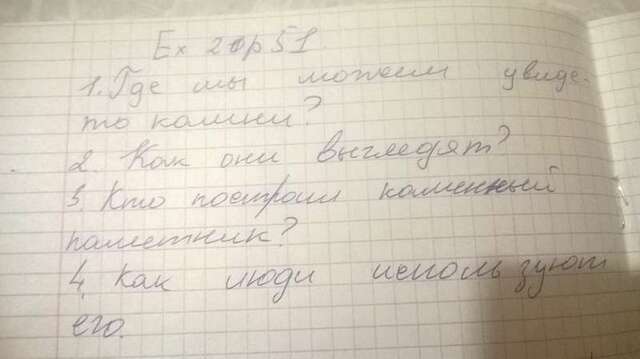 Ex 2 p 51
1. Где мы можем увиде-
ть камни?
2. Как они выглядят?
3. Кто построил каменный
памятник?
4. Как люди используют
его.